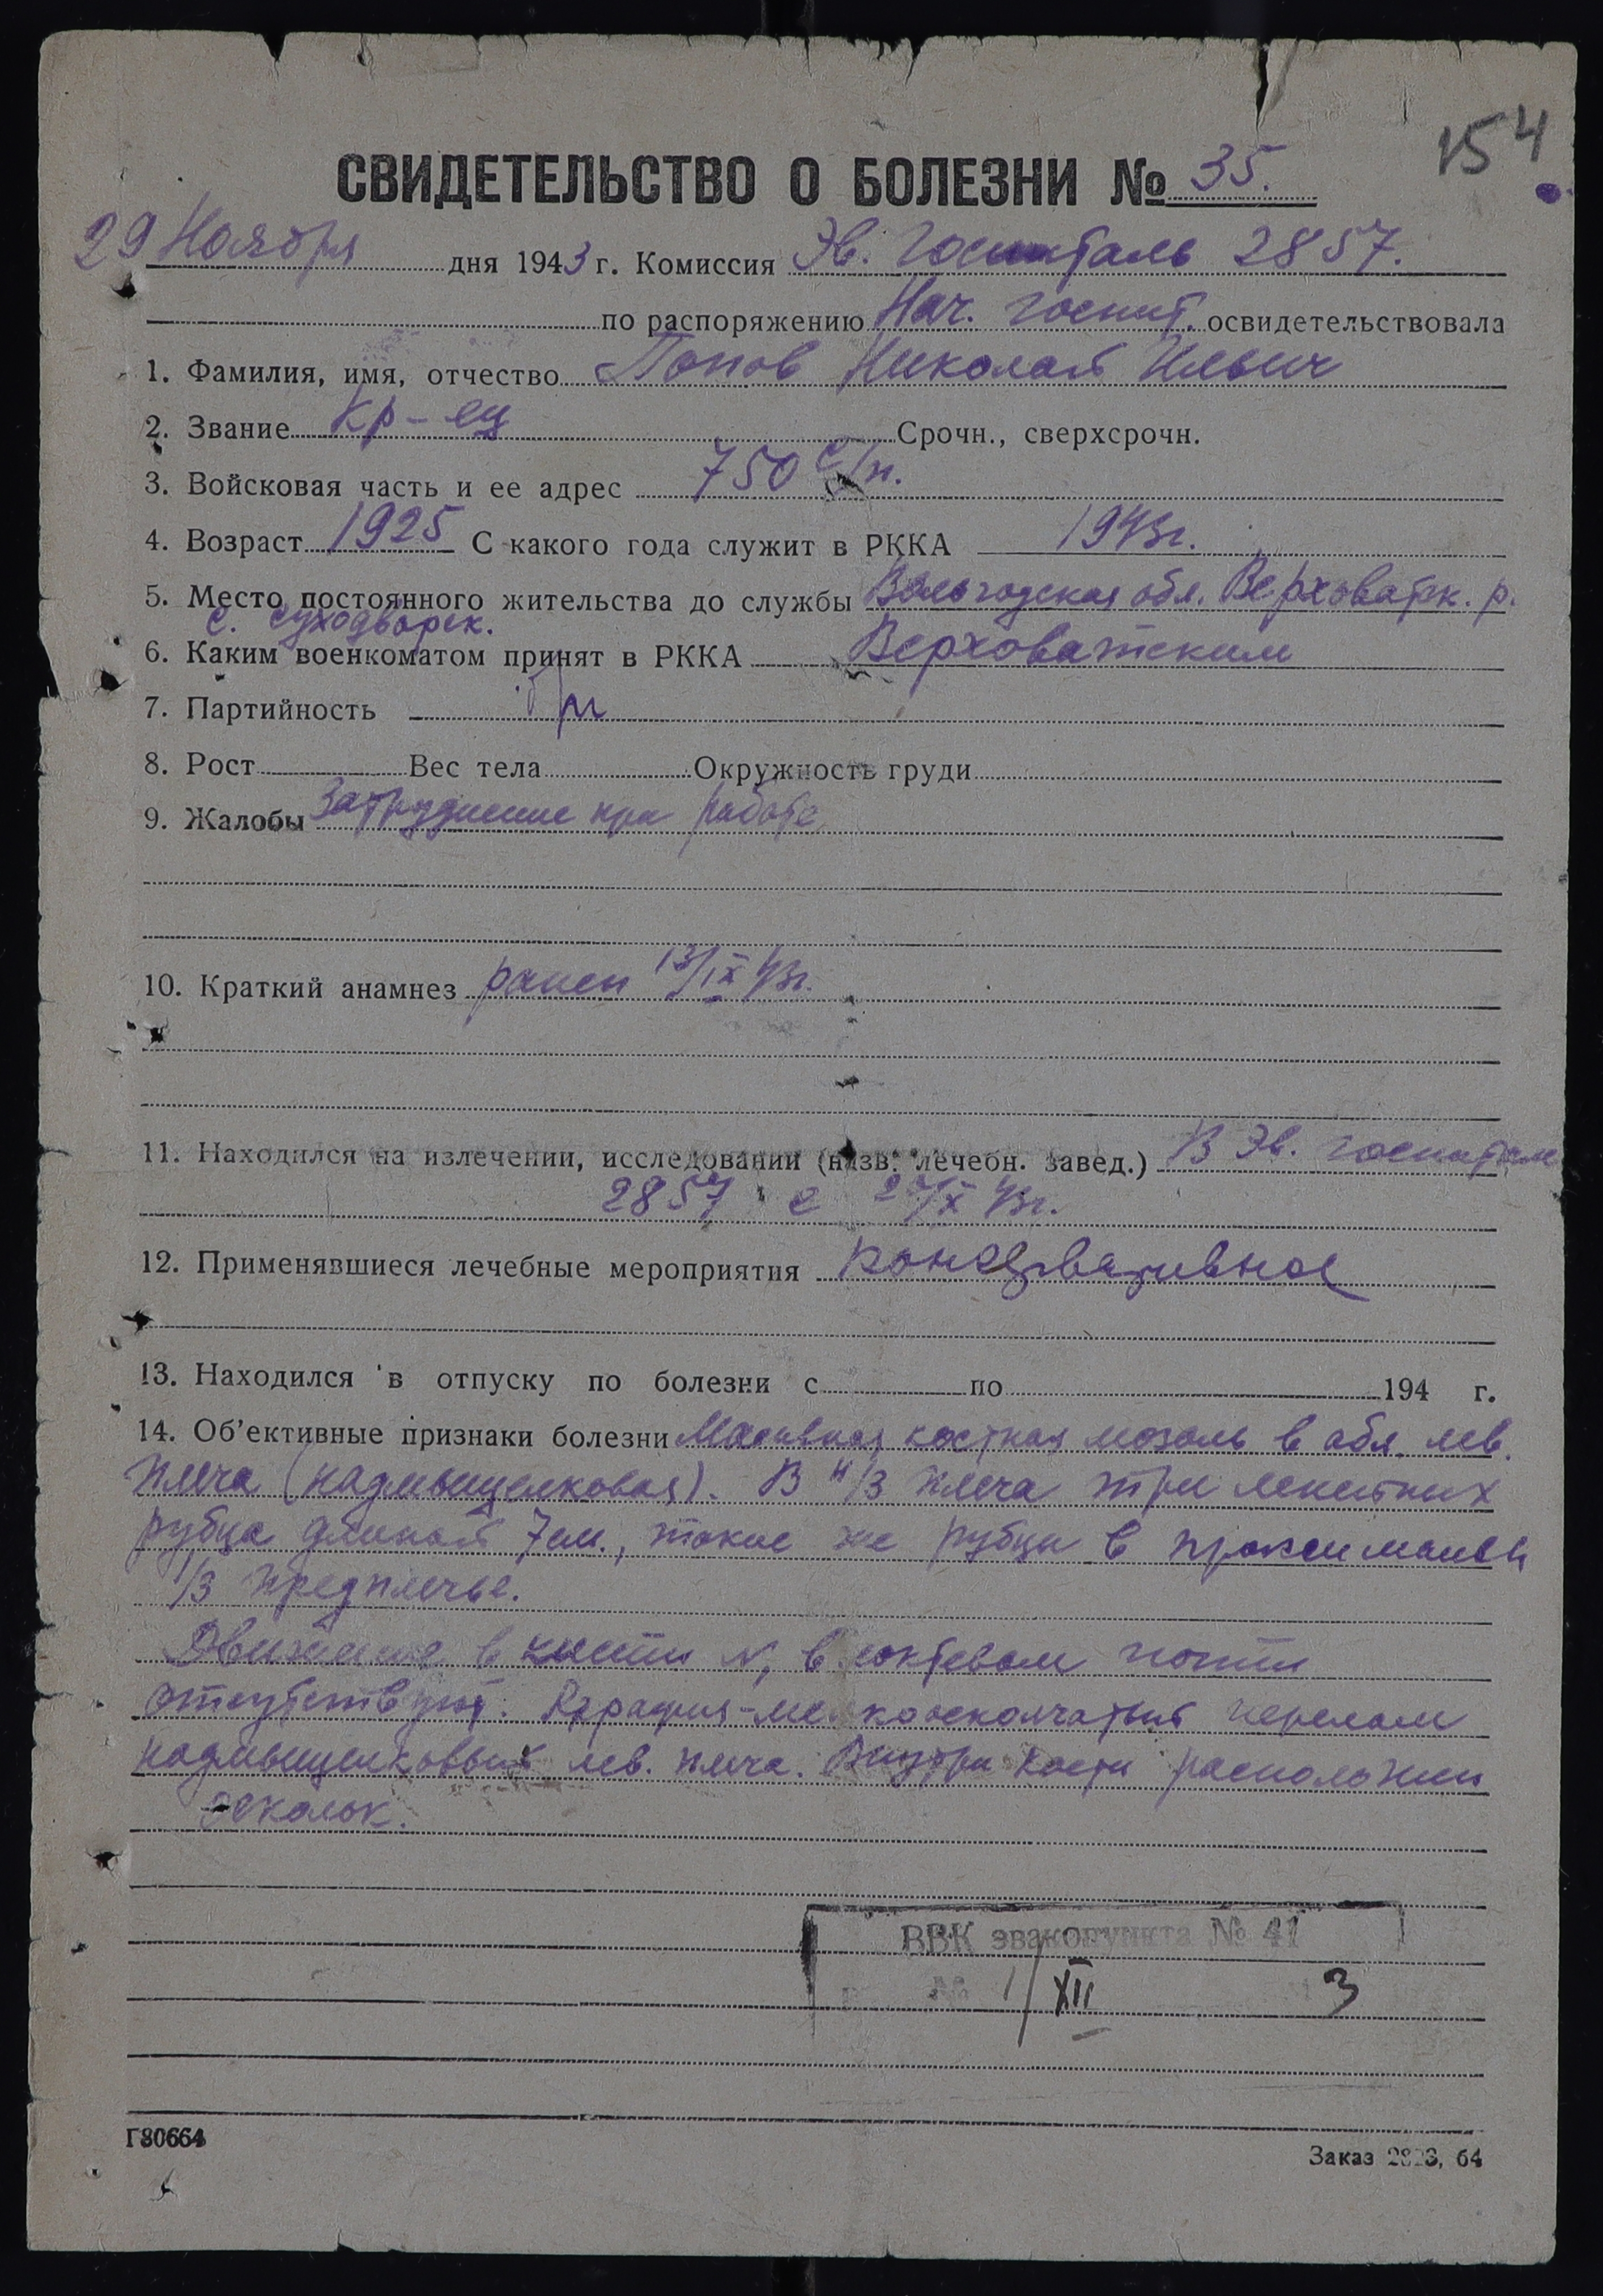 154
СВИДЕТЕЛЬСТВО О БОЛЕЗНИ № 35.
29 Ноября дня 1943 г. Комиссия Эв. Госпиталь 2857.
по распоряжению Нач. госпит. освидетельствовала
1. Фамилия, имя, отчество Попов Николай Ильич
2. Звание Кр-ец Срочн., сверхсрочн.
3. Войсковая часть и ее адрес 750 с/п.
4. Возраст 1925 С какого года служит в РККА 1943г.
5. Место постоянного жительства до службы Вологодская обл. Верховатск. р.
с. Суходворск.
6. Каким военкоматом принят в РККА Верховатским
7. Партийность
8. Рост Вес тела Окружность груди
9. Жалобы Затруднение при работе
10. Краткий анамнез ранен 13/IX 43г.
11. Находился на излечении, исследовании (назв. лечебн. завед.) В Эв. госпитале
2857 с /X 43г.
12. Применявшиеся лечебные мероприятия консервативное
13. Находился в отпуску по болезни с по 194 г.
14. Об'ективные признаки болезни Масивная костная мозоль в обл. лев.
плеча (надмыщелковая). В н/3 плеча три рубца длиной 7см., такие же рубцы в проксимальн
1/3 предплечье.
Движение в кисти N, в локтевом почти
отсутствуют. Rграфия-мелкооскольчатый перелом
надмыщелковый лев. плеча. Внутри кости расположен
осколок.
ВВК эвакопункта № 41
№ 1/XII 3
Г80664
Заказ 64